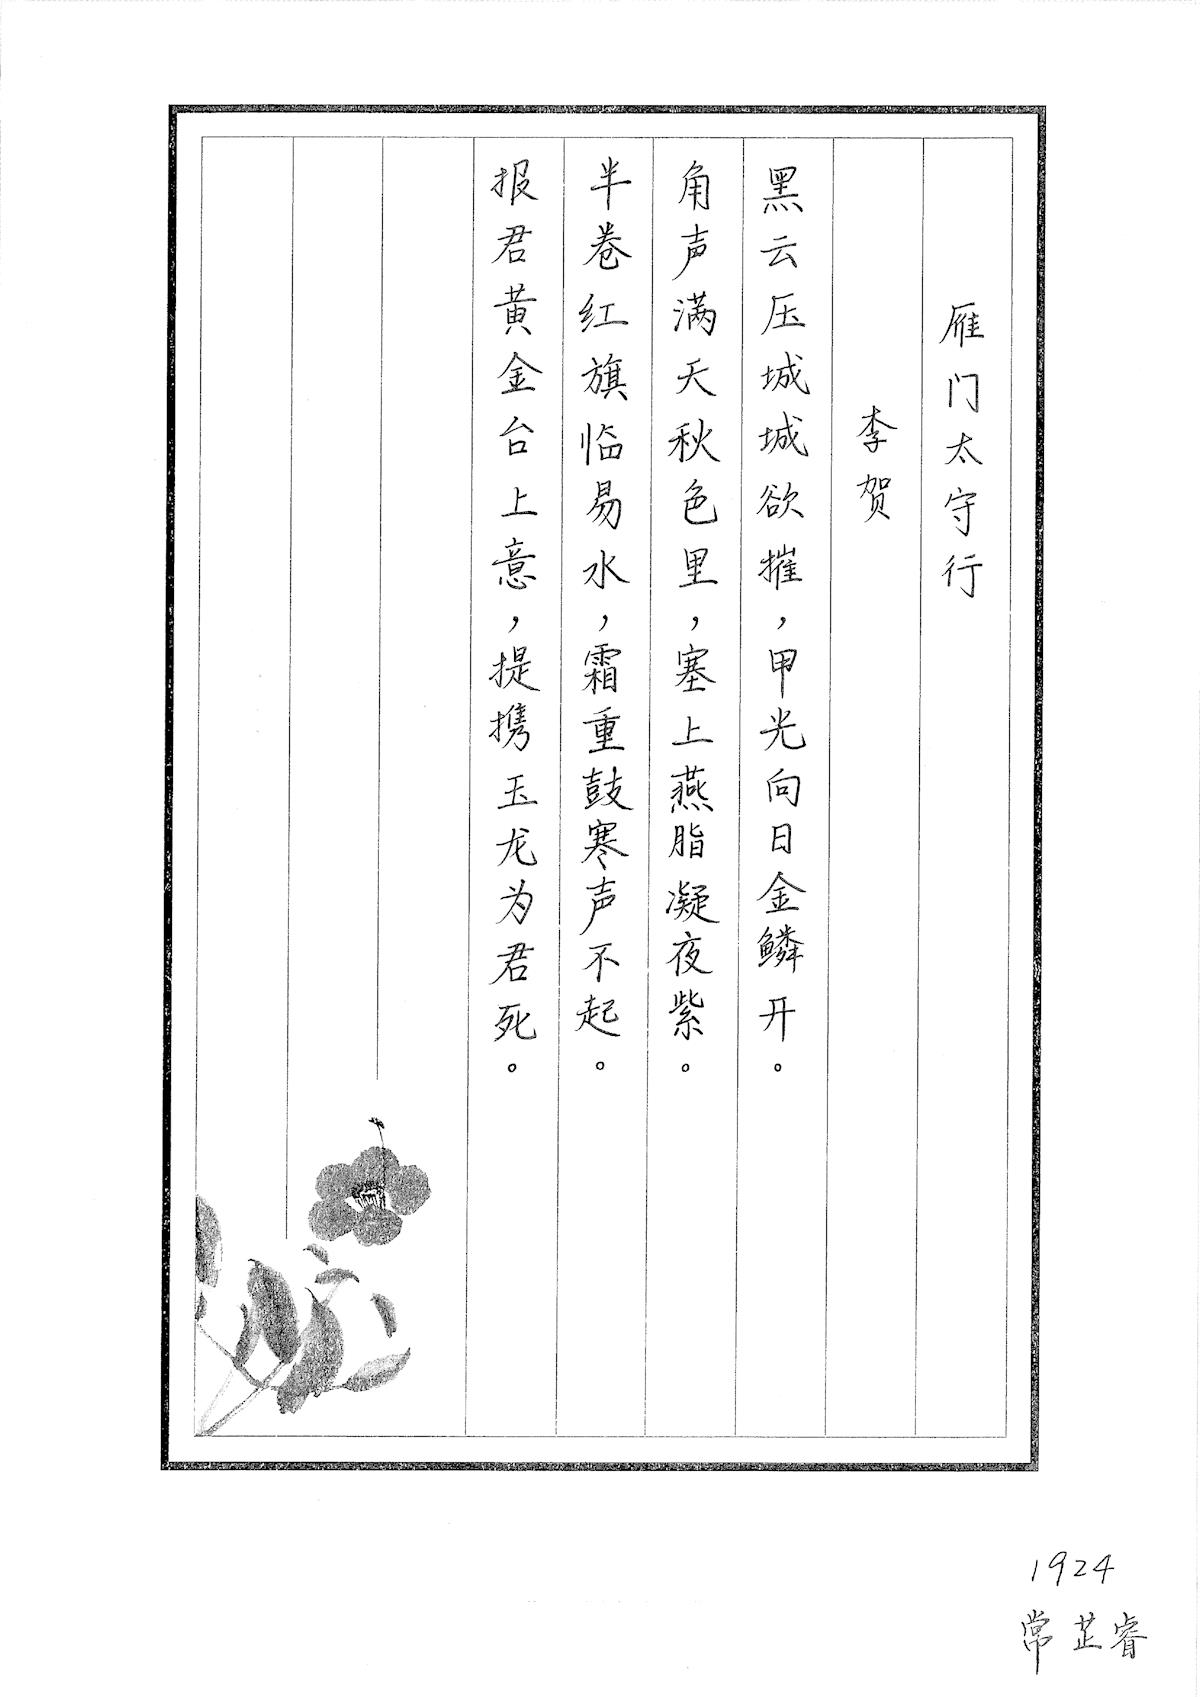 雁门太守行
李贺
黑云压城城欲摧，甲光向日金鳞开。
角声满天秋色里，塞上燕脂凝夜紫。
半卷红旗临易水，霜重鼓寒声不起。
报君黄金台上意，提携玉龙为君死。
1924
常芷睿